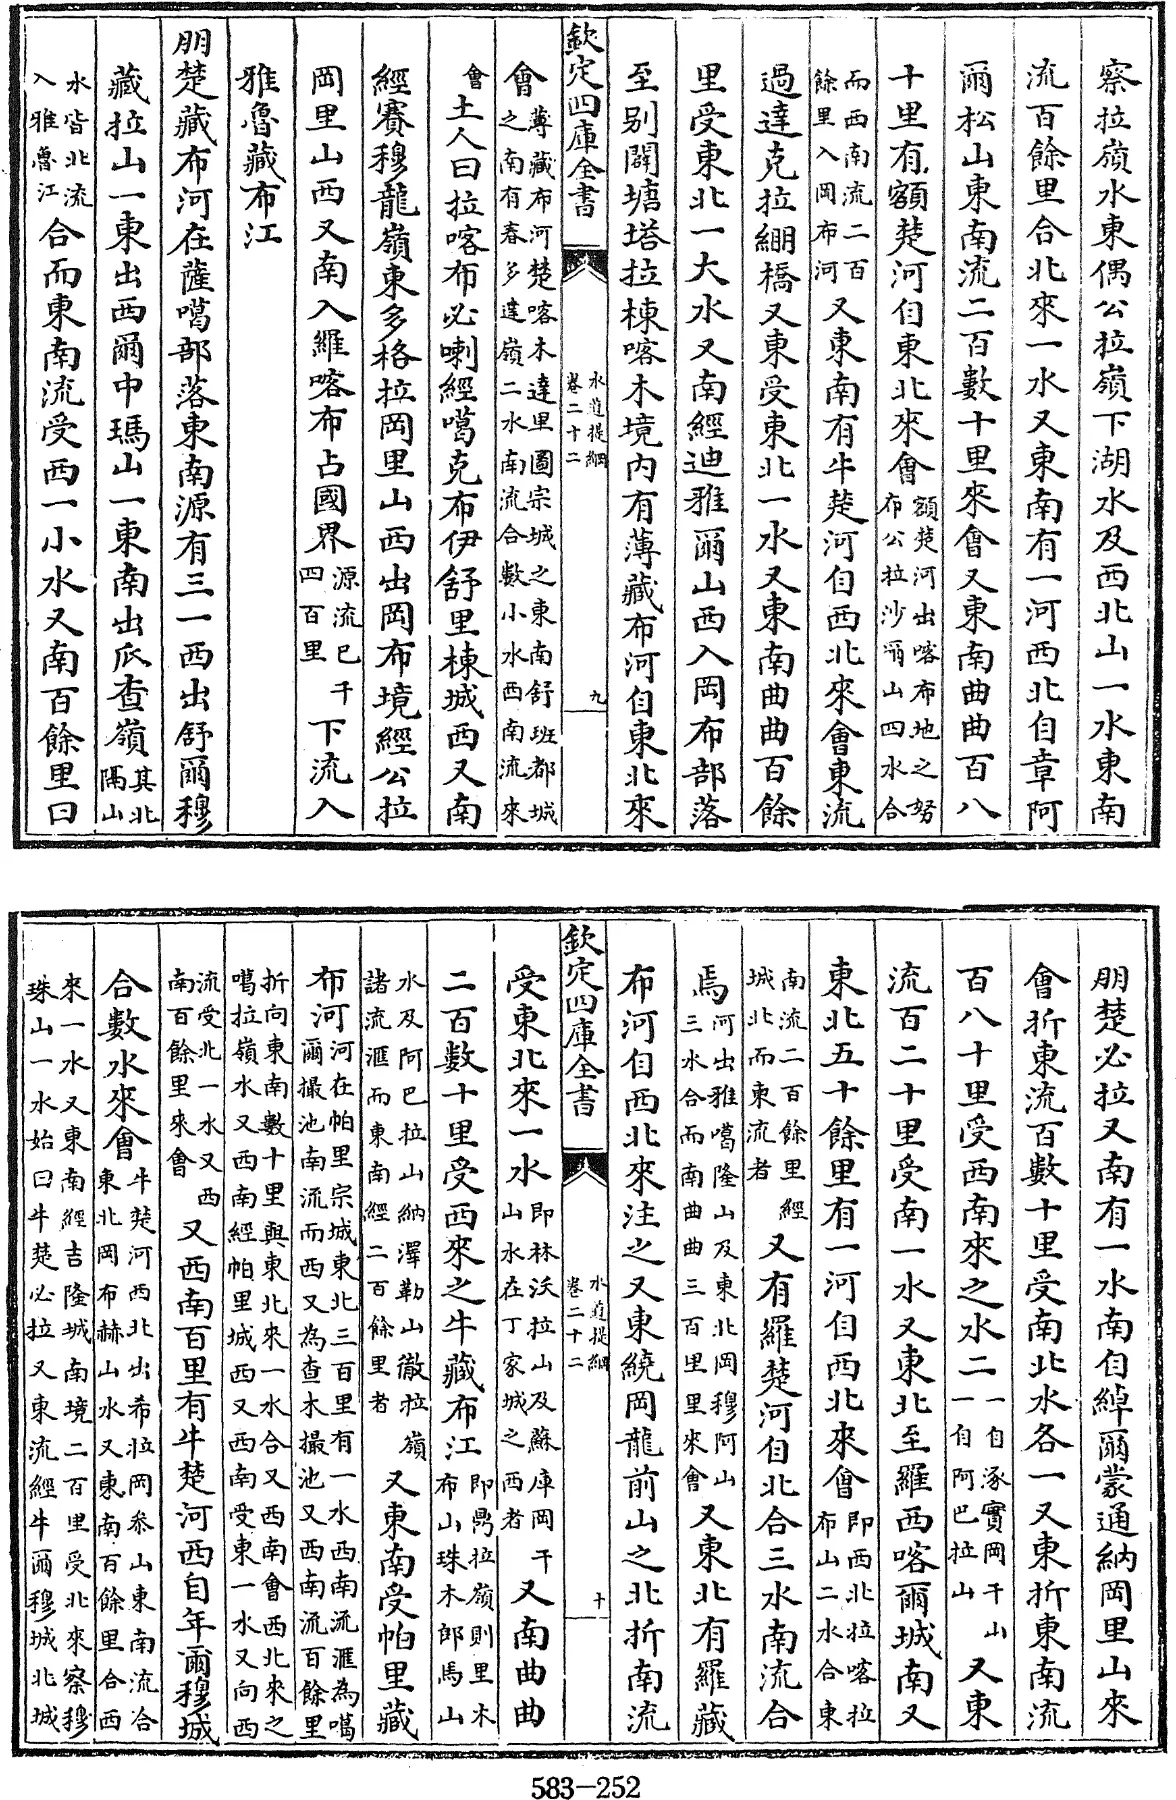 察拉嶺水東偶公拉嶺下湖水及西北山一水東南
流百餘里合北來一水又東南有一河西北自章阿
爾松山東南流二百數十里來會又東南曲曲百八
十里有額楚河自東北來會額楚河出喀布地之努布公拉沙爾山四水合
而西南流二百餘里入岡布河又東南有牛楚河自西北來會東流
過達克拉綳橋又東受東北一水又東南曲曲百餘
里受東北一大水又南經迪雅爾山西入岡布部落
至別闢塘塔拉棟喀木境內有薄藏布河自東北來
欽定四庫全書
水道提綱
卷二十二
九
會薄藏布河楚喀木達里圖宗城之東南舒班都城之南有春多達嶺二水南流合數小水西南流來
會土人曰拉喀布必喇經噶克布伊舒里棟城西又南
經賽穆龍嶺東多格拉岡里山西出岡布境經公拉
岡里山西又南入羅喀布占國界源流已千四百里下流入
雅魯藏布江
朋楚藏布河在薩噶部落東南源有三一西出舒爾穆
藏拉山一東出西爾中瑪山一東南出瓜查嶺其北隔山
水皆北流入雅魯江合而東南流受西一小水又南百餘里曰
朋楚必拉又南有一水南自綽爾蒙通納岡里山來
會折東流百數十里受南北水各一又東折東南流
百八十里受西南來之水二一自涿實岡千山一自阿巴拉山又東
流百二十里受南一水又東北至羅西喀爾城南又
東北五十餘里有一河自西北來會即西北拉喀拉布山二水合東
南流二百餘里經城北而東流者又有羅楚河自北合三水南流合
焉河出雅噶隆山及東北岡穆阿山三水合而南曲曲三百里里來會又東北有羅藏
布河自西北來注之又東繞岡龍前山之北折南流
欽定四庫全書
水道提綱
卷二十二
十
受東北來一水即林沃拉山及蘇庫岡千山水在丁家城之西者又南曲曲
二百數十里受西來之牛藏布江即鼎拉嶺則里木布山珠木郎馬山
水及阿巴拉山納澤勒山徹拉嶺諸流滙而東南經二百餘里者又東南受帕里藏
布河河在帕里宗城東北三百里有一水西南流滙為噶爾撮池南流而西又為查木撮池又西南流百餘里
折向東南數十里與東北來一水合又西南會西北來之噶拉嶺水又西南經帕里城西又西南受東一水又向西
流受北一水又西南百餘里來會又西南百里有牛楚河西自年爾穆城
合數水來會牛楚河西北出希拉岡叅山東南流合東北岡布赫山水又東南百餘里合西
來一水又東南經吉隆城南境二百里受北來察穆珠山一水始曰牛楚必拉又東流經牛爾穆城北城
583—252